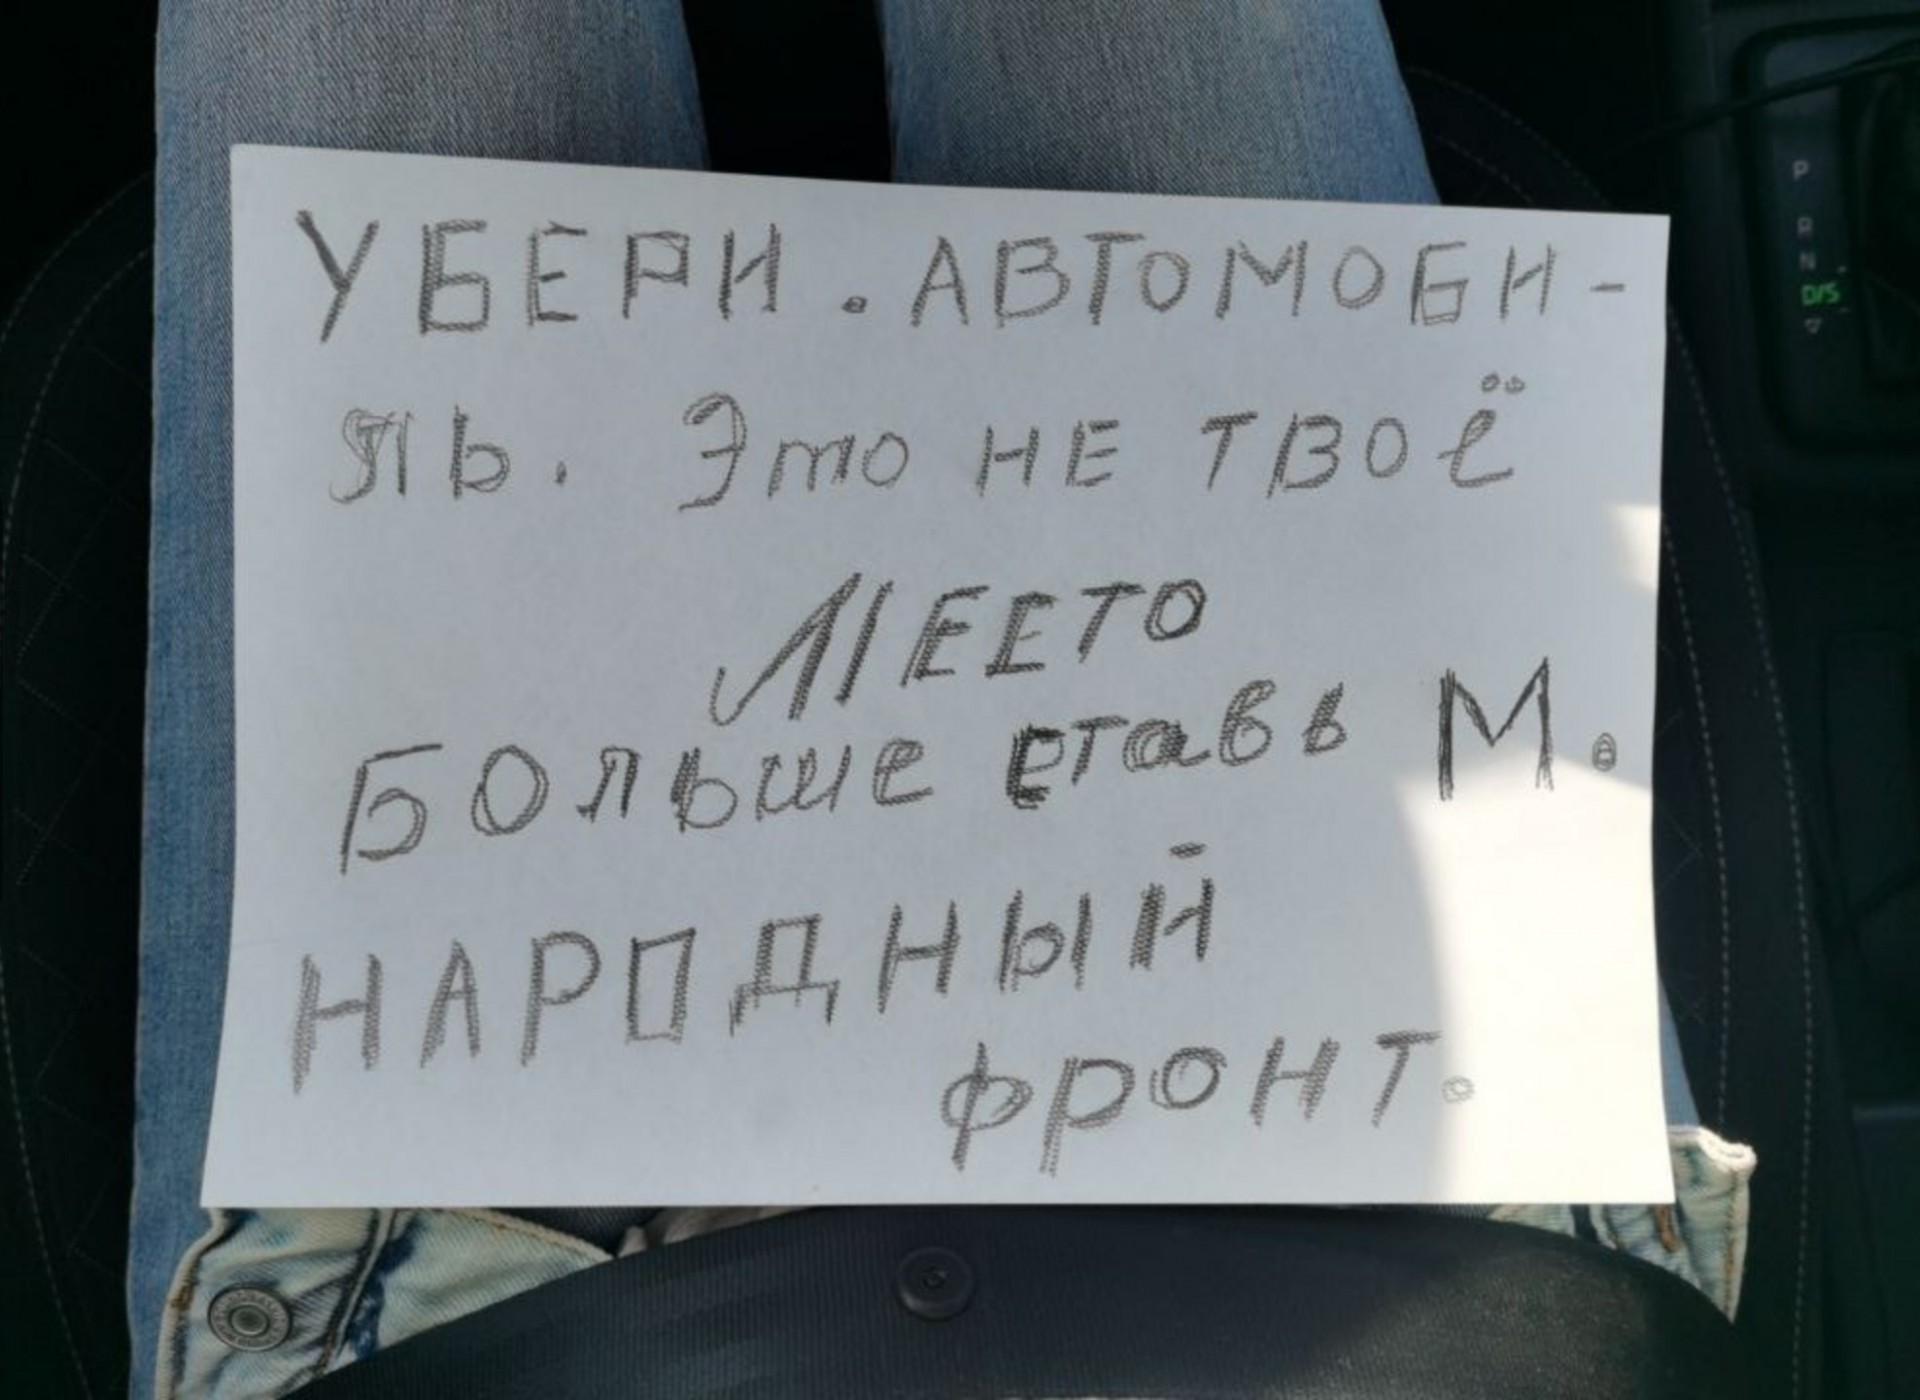 УБЕРИ. АВТОМОБИ-
ЛЬ. Это НЕ ТВОЁ
МЕСТО
БОльше ставь М.
НАРОДНЫЙ
ФРОНТ.
P
R
N
D/S